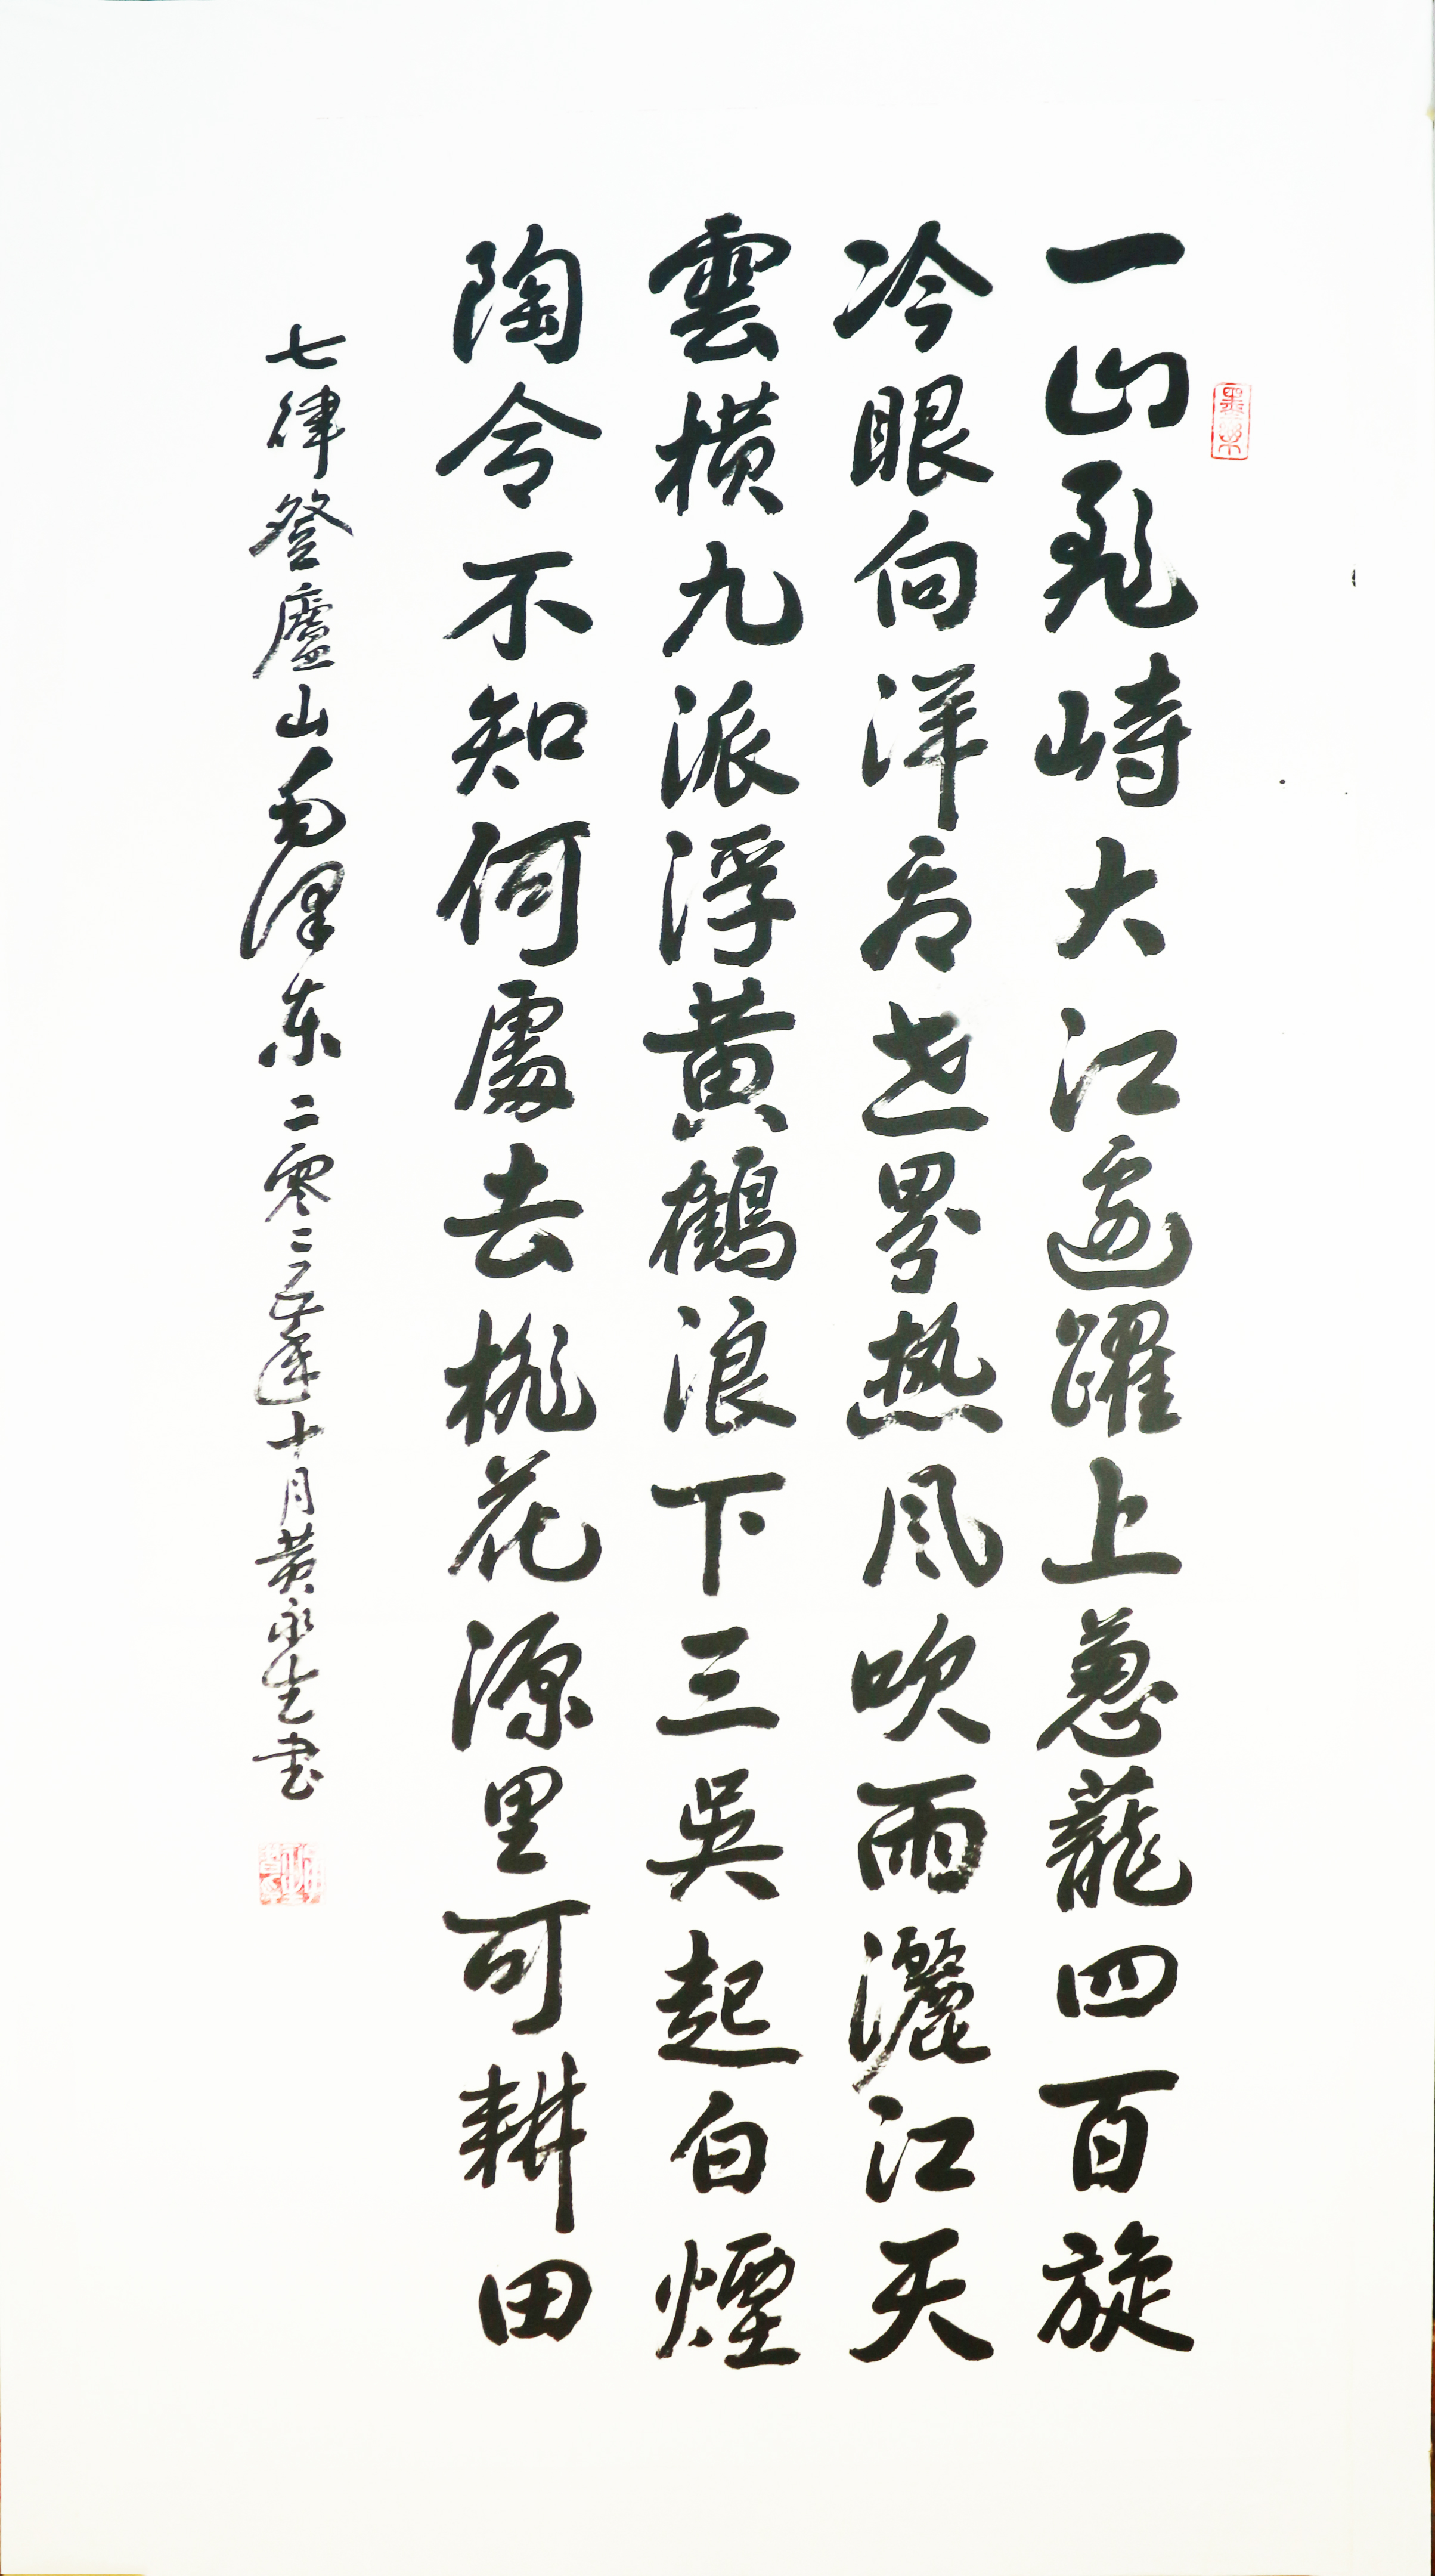 一山飛峙大江邊躍上葱蘢四百旋
冷眼向洋看世界热风吹雨灑江天
雲横九派浮黄鶴浪下三吳起白煙
陶令不知何處去桃花源里可耕田
七律登廬山毛澤东二零二五年十月黄永生书